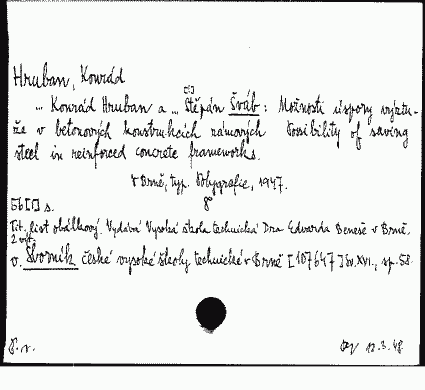 Hruban, Konrád
... Konrád Hruban a ... Štěpán Šváb: Možnosti úspory výztu-
že v betonových konstrukcích rámových Possibility of saving
steel in reinforced concrete frameworks.
V Brně, typ. Polygrafie, 1947.
56 [1] s. 8°
Tit. list obálkový. Vydává Vysoká škola technická Dra Edvarda Beneše v Brně.
2 výt.
v. Sborník české vysoké školy technické v Brně [107647] Sv. XVI., sp. 58.
12.3.48